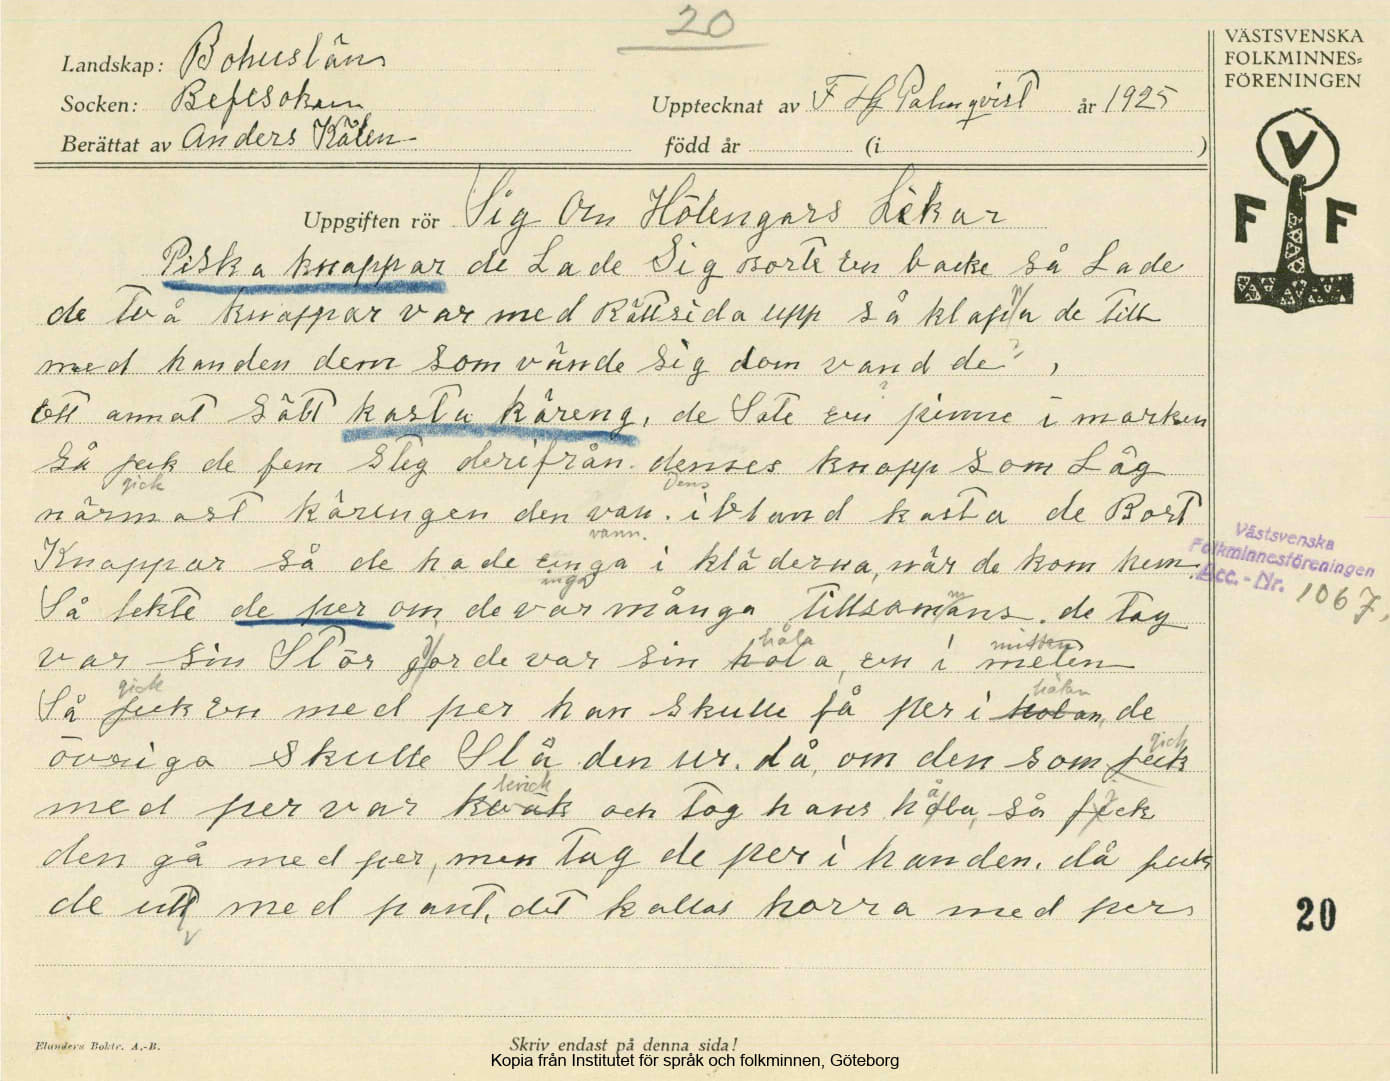 20
VÄSTSVENSKA
FOLKMINNES=
FÖRENINGEN
Landskap: Bohuslän
Socken: Befesokam
Upptecknat av F Hj Palmqvist år 1925
Berättat av Anders Kålen
född år (i )
V
F F
Uppgiften rör Sig Om Hölengars Lekar
Piska knappar de Lade Sig borte En backe så Lade
de två knappar var med Rättsida upp så klapa de till
med handen dem som vände sig dom vand de ,
Ett annat Sätt kasta käreng, de Sate en pinne i marken
Så feck de fem Steg derifrån. denses knapp som Låg
gick Dens
närmast kärengen den van. ibland kasta de Bort
vann.
Knappar så de hade enga i kläderna, när de kom hem.
inga
Så lekte de per om, de var många tillsomans. de tog
m
var sin Stör gorde var sin hola, en i meten
håla mitten
Så feck En med per han skulle få per i holan, de
gick hålan
övriga skulle Slå den ur. då, om den som feck
gick
med per var kväk och tog hans håla, så feck
kvick
den gå med per, men tog de per i handen. då feck
de utt med pant, det kallas horra med pers
Västsvenska
Folkminnesföreningen
Acc.-Nr. 1067,
20
Elanders Boktr. A.-B.
Skriv endast på denna sida!
Kopia från Institutet för språk och folkminnen, Göteborg